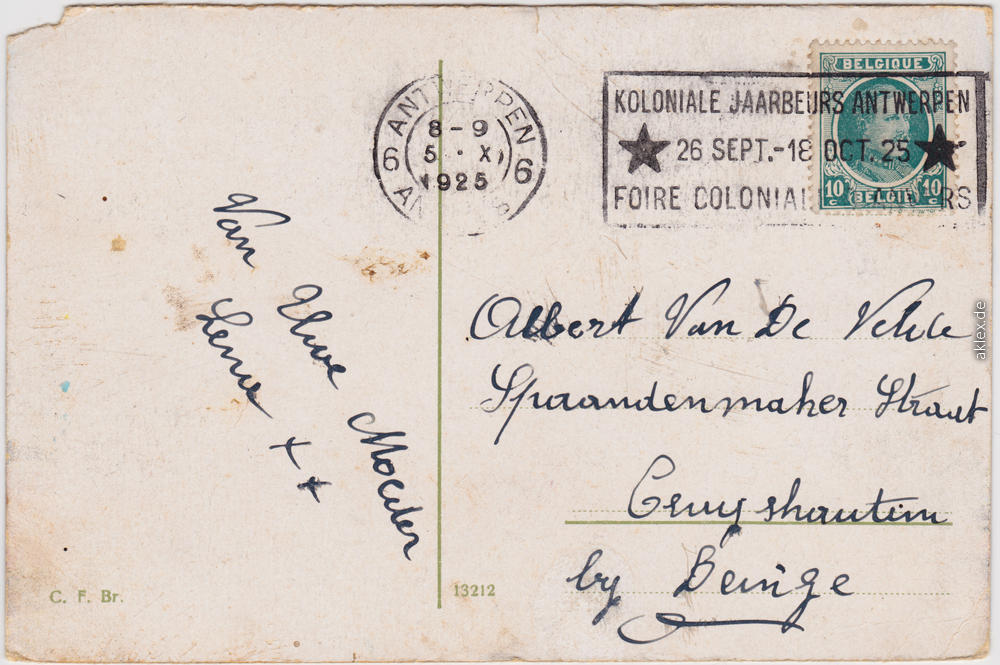 ANTWERPEN
8-9
5 · X
1925
6 6
KOLONIALE JAARBEURS ANTWERPEN
26 SEPT.-18 OCT. 25
FOIRE COLONIAL RS
BELGIQUE
10 c 10 c
BELGIE
Van Uwe Moeder
++
Albert Van De Velde
Spaandenmaker Straat
Cruyshautem
by Deinze
C. F. Br.
13212
aklex.de